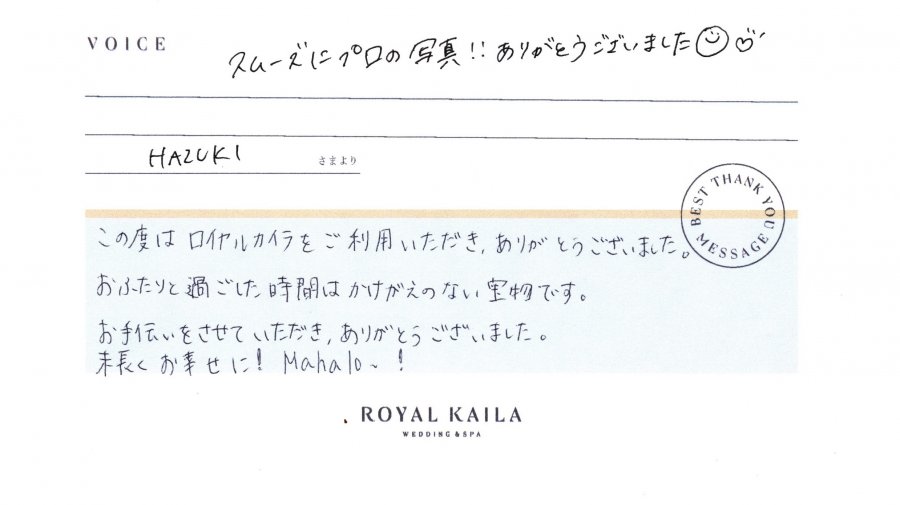 VOICE
スムーズにプロの写真!! ありがとうございました
HAZUKI さまより
BEST THANK YOU MESSAGE
この度は ロイヤルカイラをご利用いただき、ありがとうございました。
おふたりと過ごした時間はかけがえのない宝物です。
お手伝いをさせていただき、ありがとうございました。
末長くお幸せに! Mahalo~!
ROYAL KAILA
WEDDING & SPA